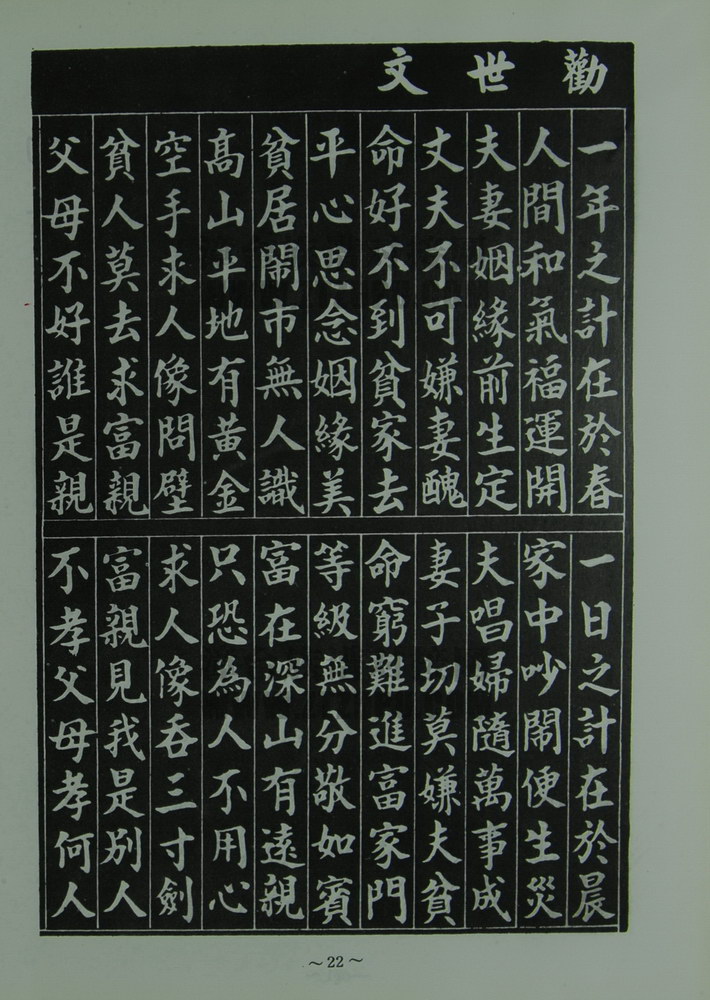 勸世文
一年之計在於春
人間和氣福運開
夫妻姻緣前生定
丈夫不可嫌妻醜
命好不到貧家去
平心思念姻緣美
貧居鬧市無人識
高山平地有黃金
空手求人像問壁
貧人莫去求富親
父母不好誰是親
一日之計在於晨
家中吵鬧便生災
夫唱婦隨萬事成
妻子切莫嫌夫貧
命窮難進富家門
等級無分敬如賓
富在深山有遠親
只恐為人不用心
求人像吞三寸劍
富親見我是別人
不孝父母孝何人
~22~